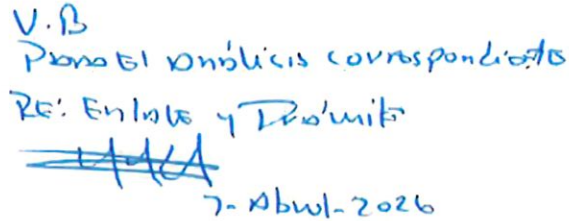 V.B
Para El análicis correspondiente
RE: Enlace y Trámite
7-Abril-2026